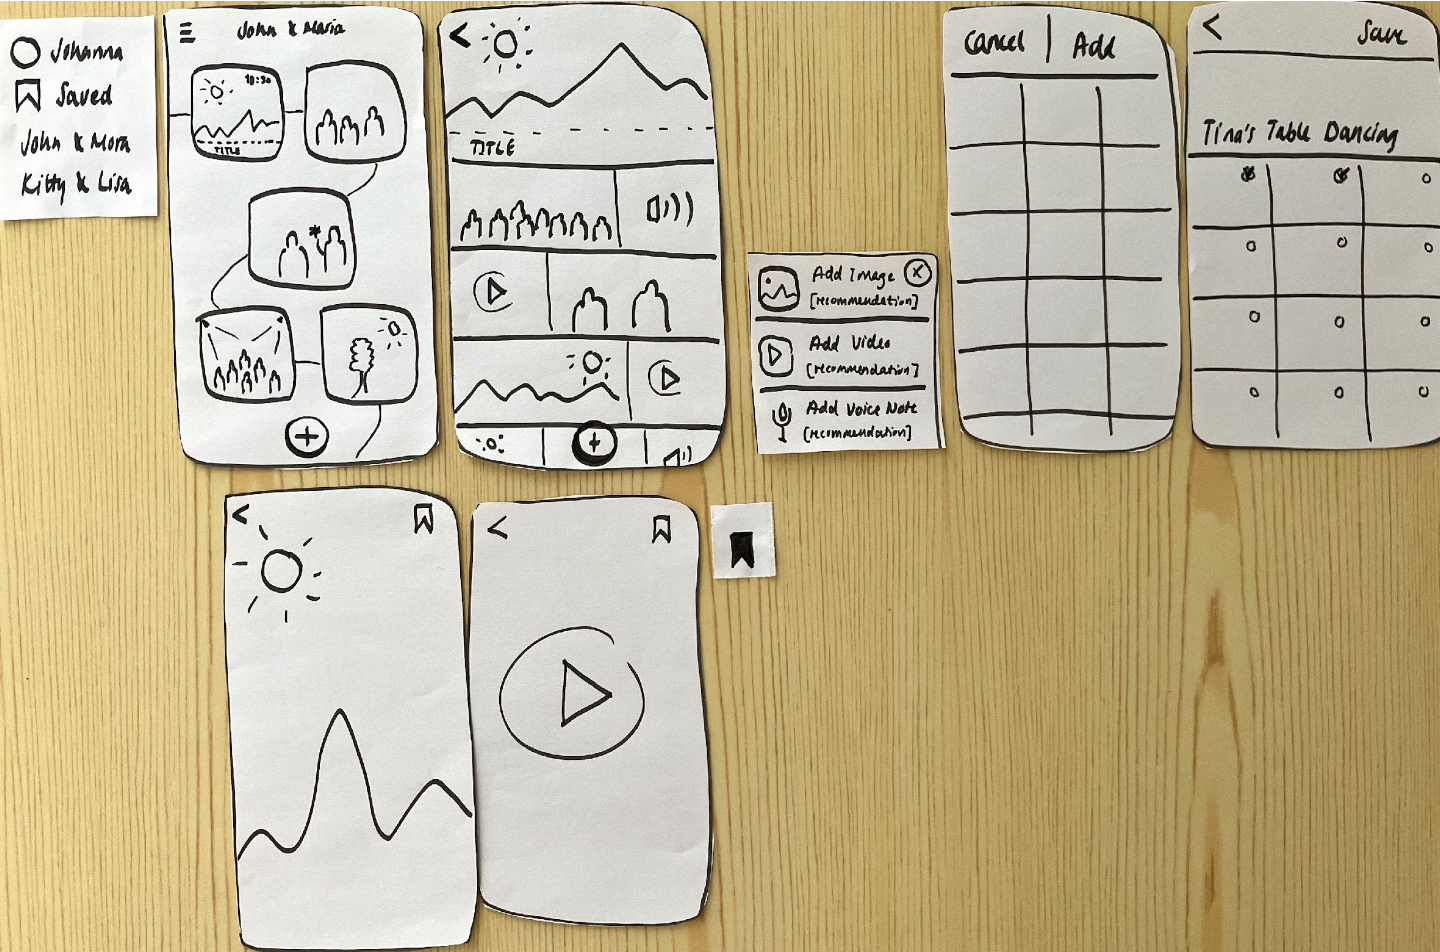 Johanna
Saved
John & Mora
Kitty & Lisa
John & Maria
10:30
TITLE
TITLE
Add Image
[recommendation]
Add Video
[recommendation]
Add Voice Note
[recommendation]
Cancel | Add
Save
Tina's Table Dancing